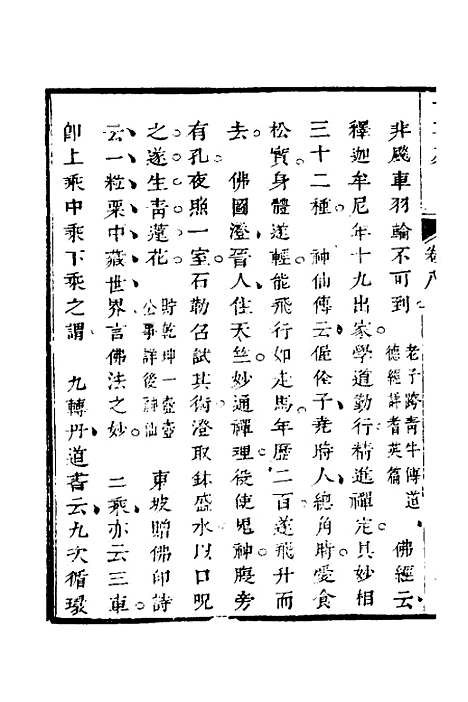 卷八
非飈車羽輪不可到　老子跨靑牛傳道德經詳耆英篇　佛經云
釋迦牟尼年十九出家學道勤行精進禪定具妙相
三十二種　神仙傳云偓佺子堯時人總角時愛食
松實身體遂輕能飛行如走馬年歷二百遂飛升而
去　佛國澄晉人住天竺妙通禪理役使鬼神腹旁
有孔夜照一室石勒召試其術澄取鉢盛水以口呪
之遂生靑蓮花　貯乾坤一壺壺公事詳後神仙　東坡贈佛印詩
云一粒粟中藏世界言佛法之妙　二乘亦云三車
卽上乘中乘下乘之謂　九轉丹道書云九次循環